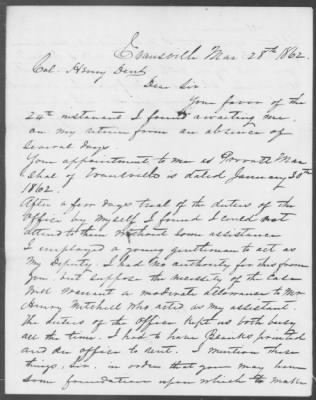 Evansville Mar 28th 1862.
Col. Henry Dent
Dear Sir
Your favor of the
24th instanant I found awaiting me
on my return from an absence of
several days.
Your appointment to me as Provost Mar
shal of Evansville is dated January 30th
1862.
After a few days trial of the duties of the
Office by myself I found I could not
attend to them without some assistance
I employed a young gentleman to act as
My Deputy. I had no authority for this from
you, but suppose the necessity of the case
will warrant a moderate allowance to Mr
Henry Mitchell who acted as my assistant.
The duties of the Office kept us both busy
all the time. I had to have Blanks printed
and an office to rent. I mention these
things, Sir, in order that you may have
some foundation upon which to make